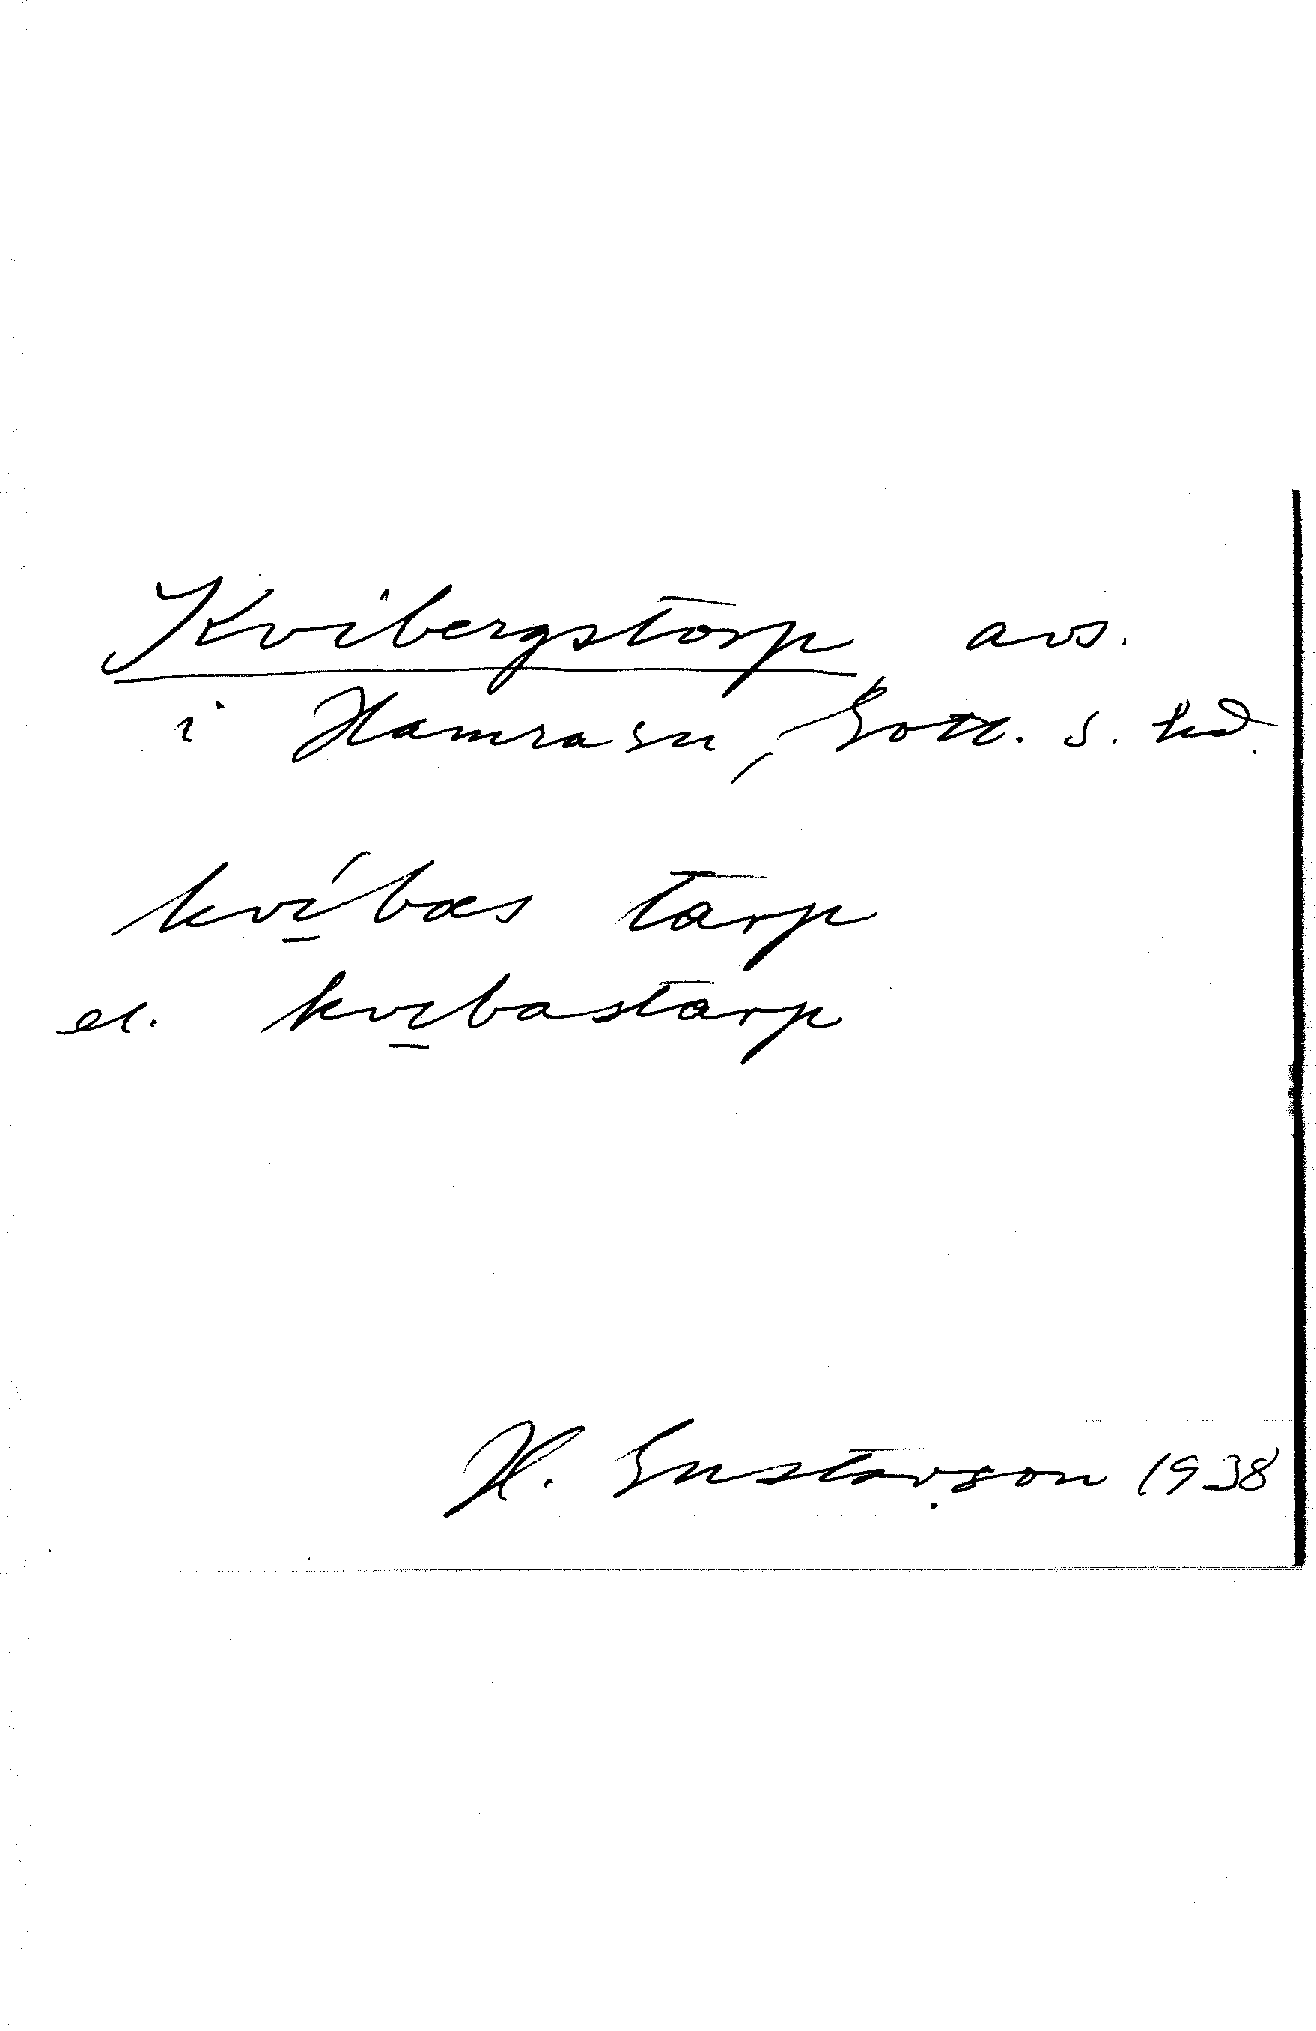 Kvibergstorp avs.
i Hamra sn, Gotl. s. hd.
kvíbæs tarp
el. kvibastarp
H. Gustavson 1938